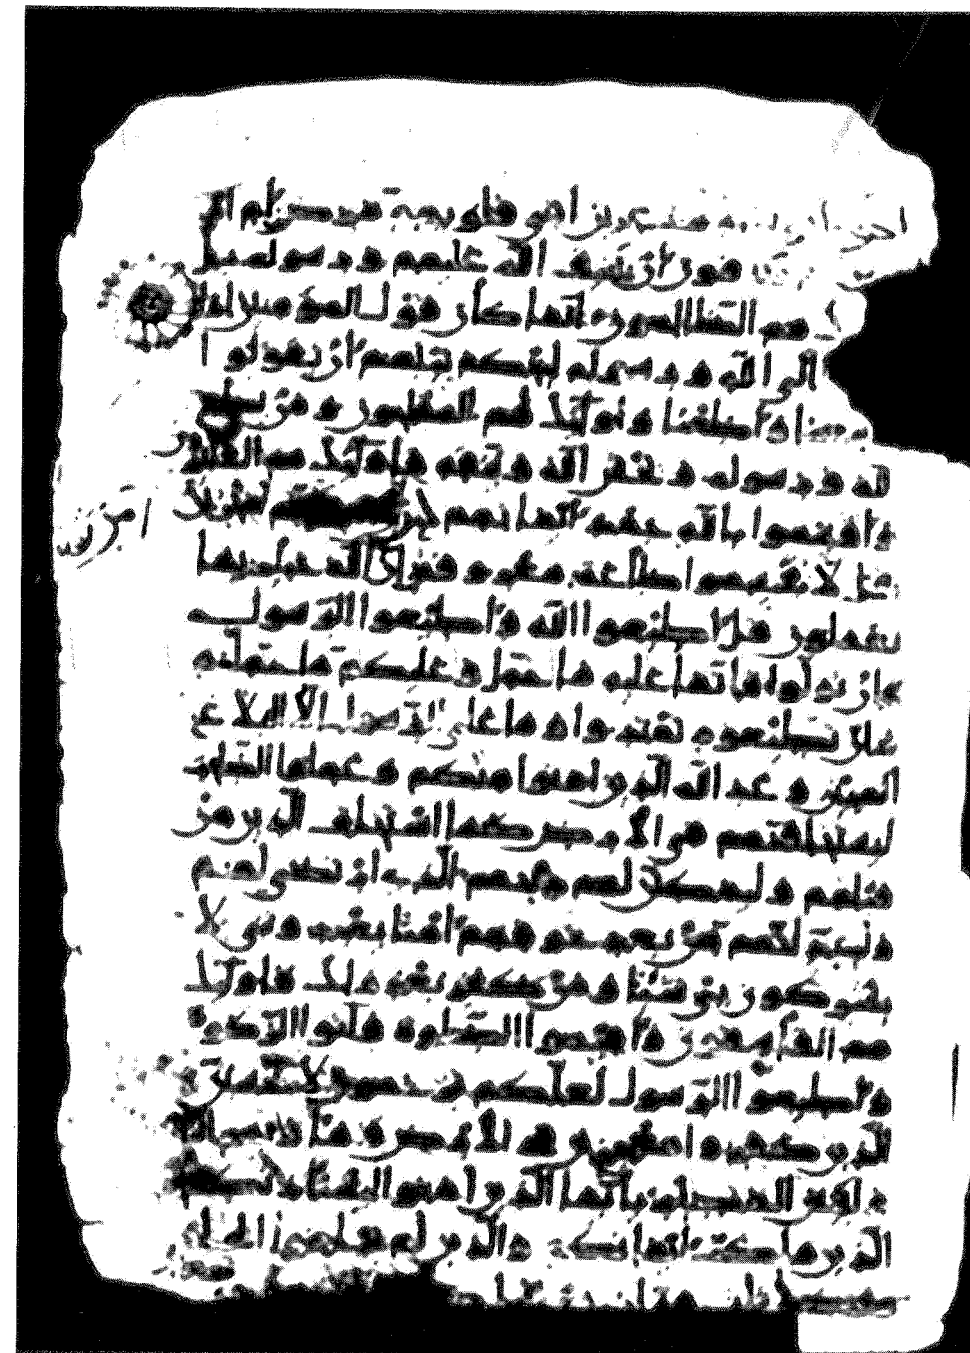 قلوبهم مرض ام ار
فون ان يحيف الله عليهم ورسوله بل
هم الظلمون انما كان قول المؤمنين اذا
الى الله ورسوله ليحكم بينهم ان يقولوا
سمعنا واطعنا واولئك هم المفلحون ومن يطع
الله ورسوله ويخش الله ويتقه فاولئك هم الفائزون
واقسموا بالله جهد ايمنهم لئن امرتهم ليخرجن
قل لا تقسموا طاعة معروفة ان الله خبير بما
تعملون قل اطيعوا الله واطيعوا الرسول
فان تولوا فانما عليه ما حمل وعليكم ما حملتم
وان تطيعوه تهتدوا وما على الرسول الا البلاغ
المبين وعد الله الذين امنوا منكم وعملوا الصلحت
ليستخلفنهم في الارض كما استخلف الذين من
قبلهم وليمكنن لهم دينهم الذي ارتضى لهم
وليبدلنهم من بعد خوفهم امنا يعبدونني لا
يشركون بي شيئا ومن كفر بعد ذلك فاولئك
هم الفاسقون واقيموا الصلوة واتوا الزكوة
واطيعوا الرسول لعلكم ترحمون لا تحسبن
الذين كفروا معجزين في الارض وماويهم النار
ولبئس المصير يايها الذين امنوا ليستاذنكم
الذين ملكت ايمانكم والذين لم يبلغوا الحلم